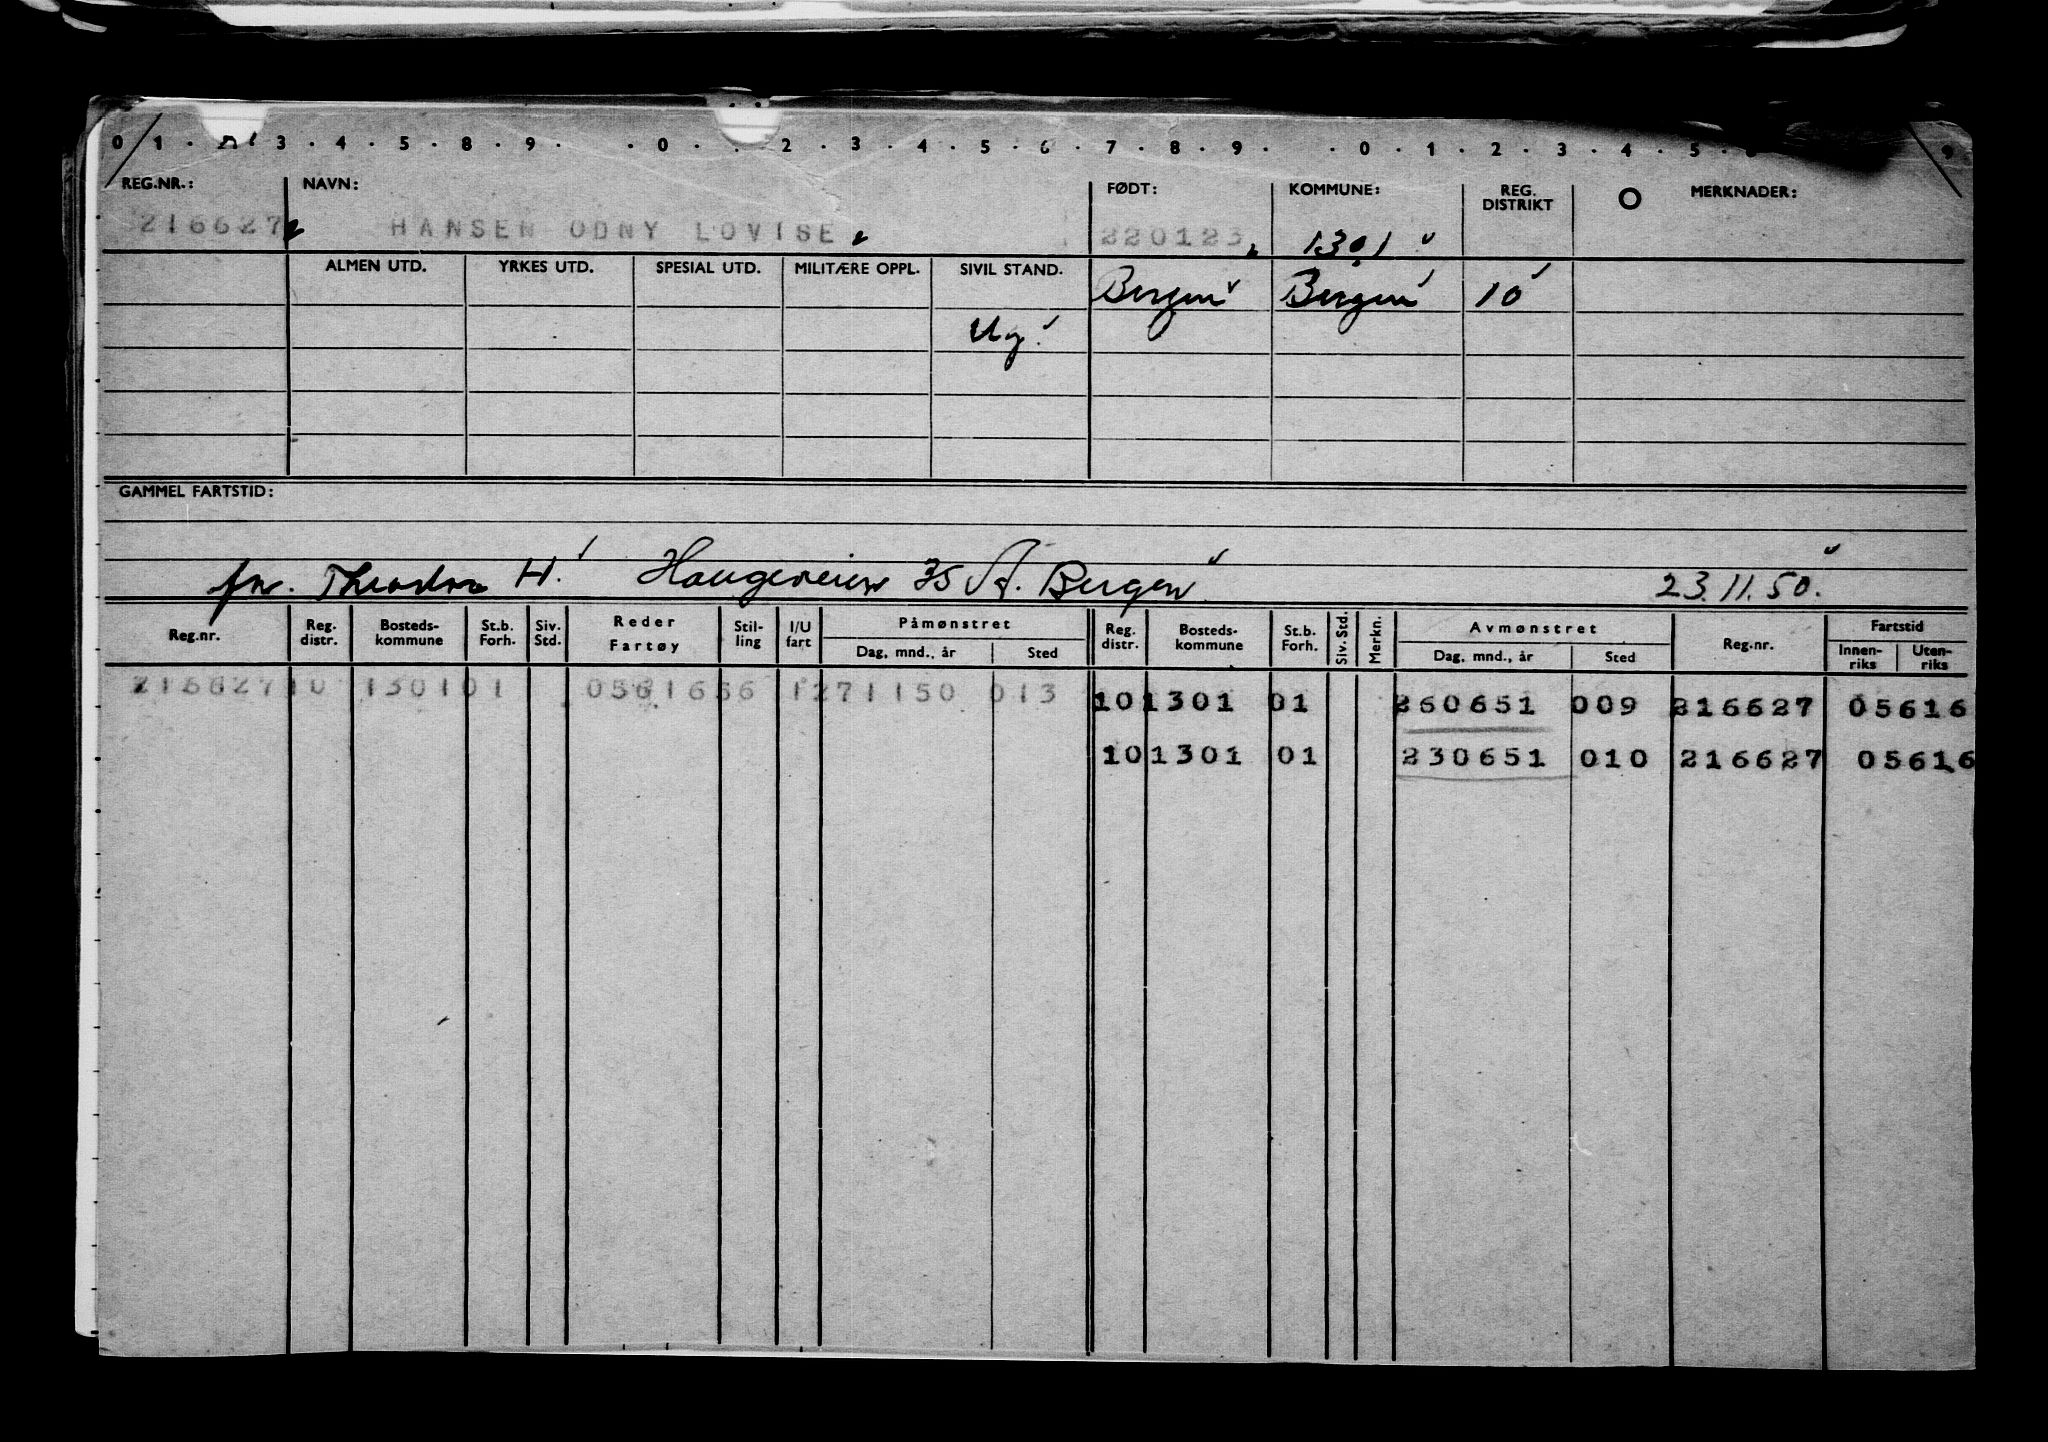 0 1 . 3 . 4 . 5 . 8 . 9 . . 0 . . 2 . 3 . 4 . 5 . 6 . 7 . 8 . 9 . . 0 . 1 . 2 . 3 . 4 . 5 9
REG.NR.: NAVN: FØDT: KOMMUNE: REG. DISTRIKT MERKNADER:
216627 HANSEN ODNY LOVISE 220123 1301
ALMEN UTD. YRKES UTD. SPESIAL UTD. MILITÆRE OPPL. SIVIL STAND. Bergen Bergen 10
Ug.
GAMMEL FARTSTID:
fm. Theodora H. Haugeveien 35 A. Bergen 23.11.50.
Reg.nr. Reg. distr. Bosteds- kommune St.b. Forh. Siv. Std. Reder Fartøy Stil- ling I/U fart Påmønstret Dag, mnd., år Sted Reg. distr. Bosteds- kommune St.b. Forh. Siv.Std. Merkn. Avmønstret Dag, mnd., år Sted Reg.nr. Fartstid Innen- riks Uten- riks
216627 10 1301 01 0561656 1 271150 013 10 1301 01 260651 009 216627 05616
10 1301 01 230651 010 216627 05616